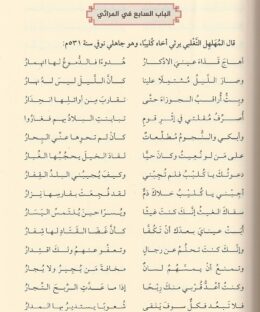 الباب السابع في المراثي
قال المهلهل التغلبي يرثي أخاه كليبًا، وهو جاهلي توفي سنة ٥٣١م:
أهاج قذاء عيني الاذكار هدوءًا فالدموع لها انهمار
وصار الليل مشتملا علينا كأن الليل ليس له نهار
وبت أراقب الجوزاء حتى تقارب من أوائلها انحدار
أصرف مقلتي في إثر قوم تباينت البلاد بهم فغاروا
وأبكي والنجوم مطلعات كأن لم تحوها عني البحار
على من لو نعيت وكان حيا لقاد الخيل يحجبها الغبار
دعوتك يا كليب فلم تجبني وكيف يجيبني البلد القفار
أجبني يا كليب خلاك ذم لقد فجعت بفارسها نزار
سقاك الغيث إنك كنت غيثا ويسرا حين يلتمس اليسار
أبت عيناي بعدك أن تكفا كأن غضا القتاد لها شفار
وإنك كنت تحلم عن رجال وتعفو عنهم ولك اقتدار
وتمنع أن يمسهم لسان مخافة من يجير ولا يجار
وكنت أعد قربي منك ربحا إذا ما عدت الربح التجار
فلا تبعد فكل سوف يلقى شعوبا يستدير بها المدار